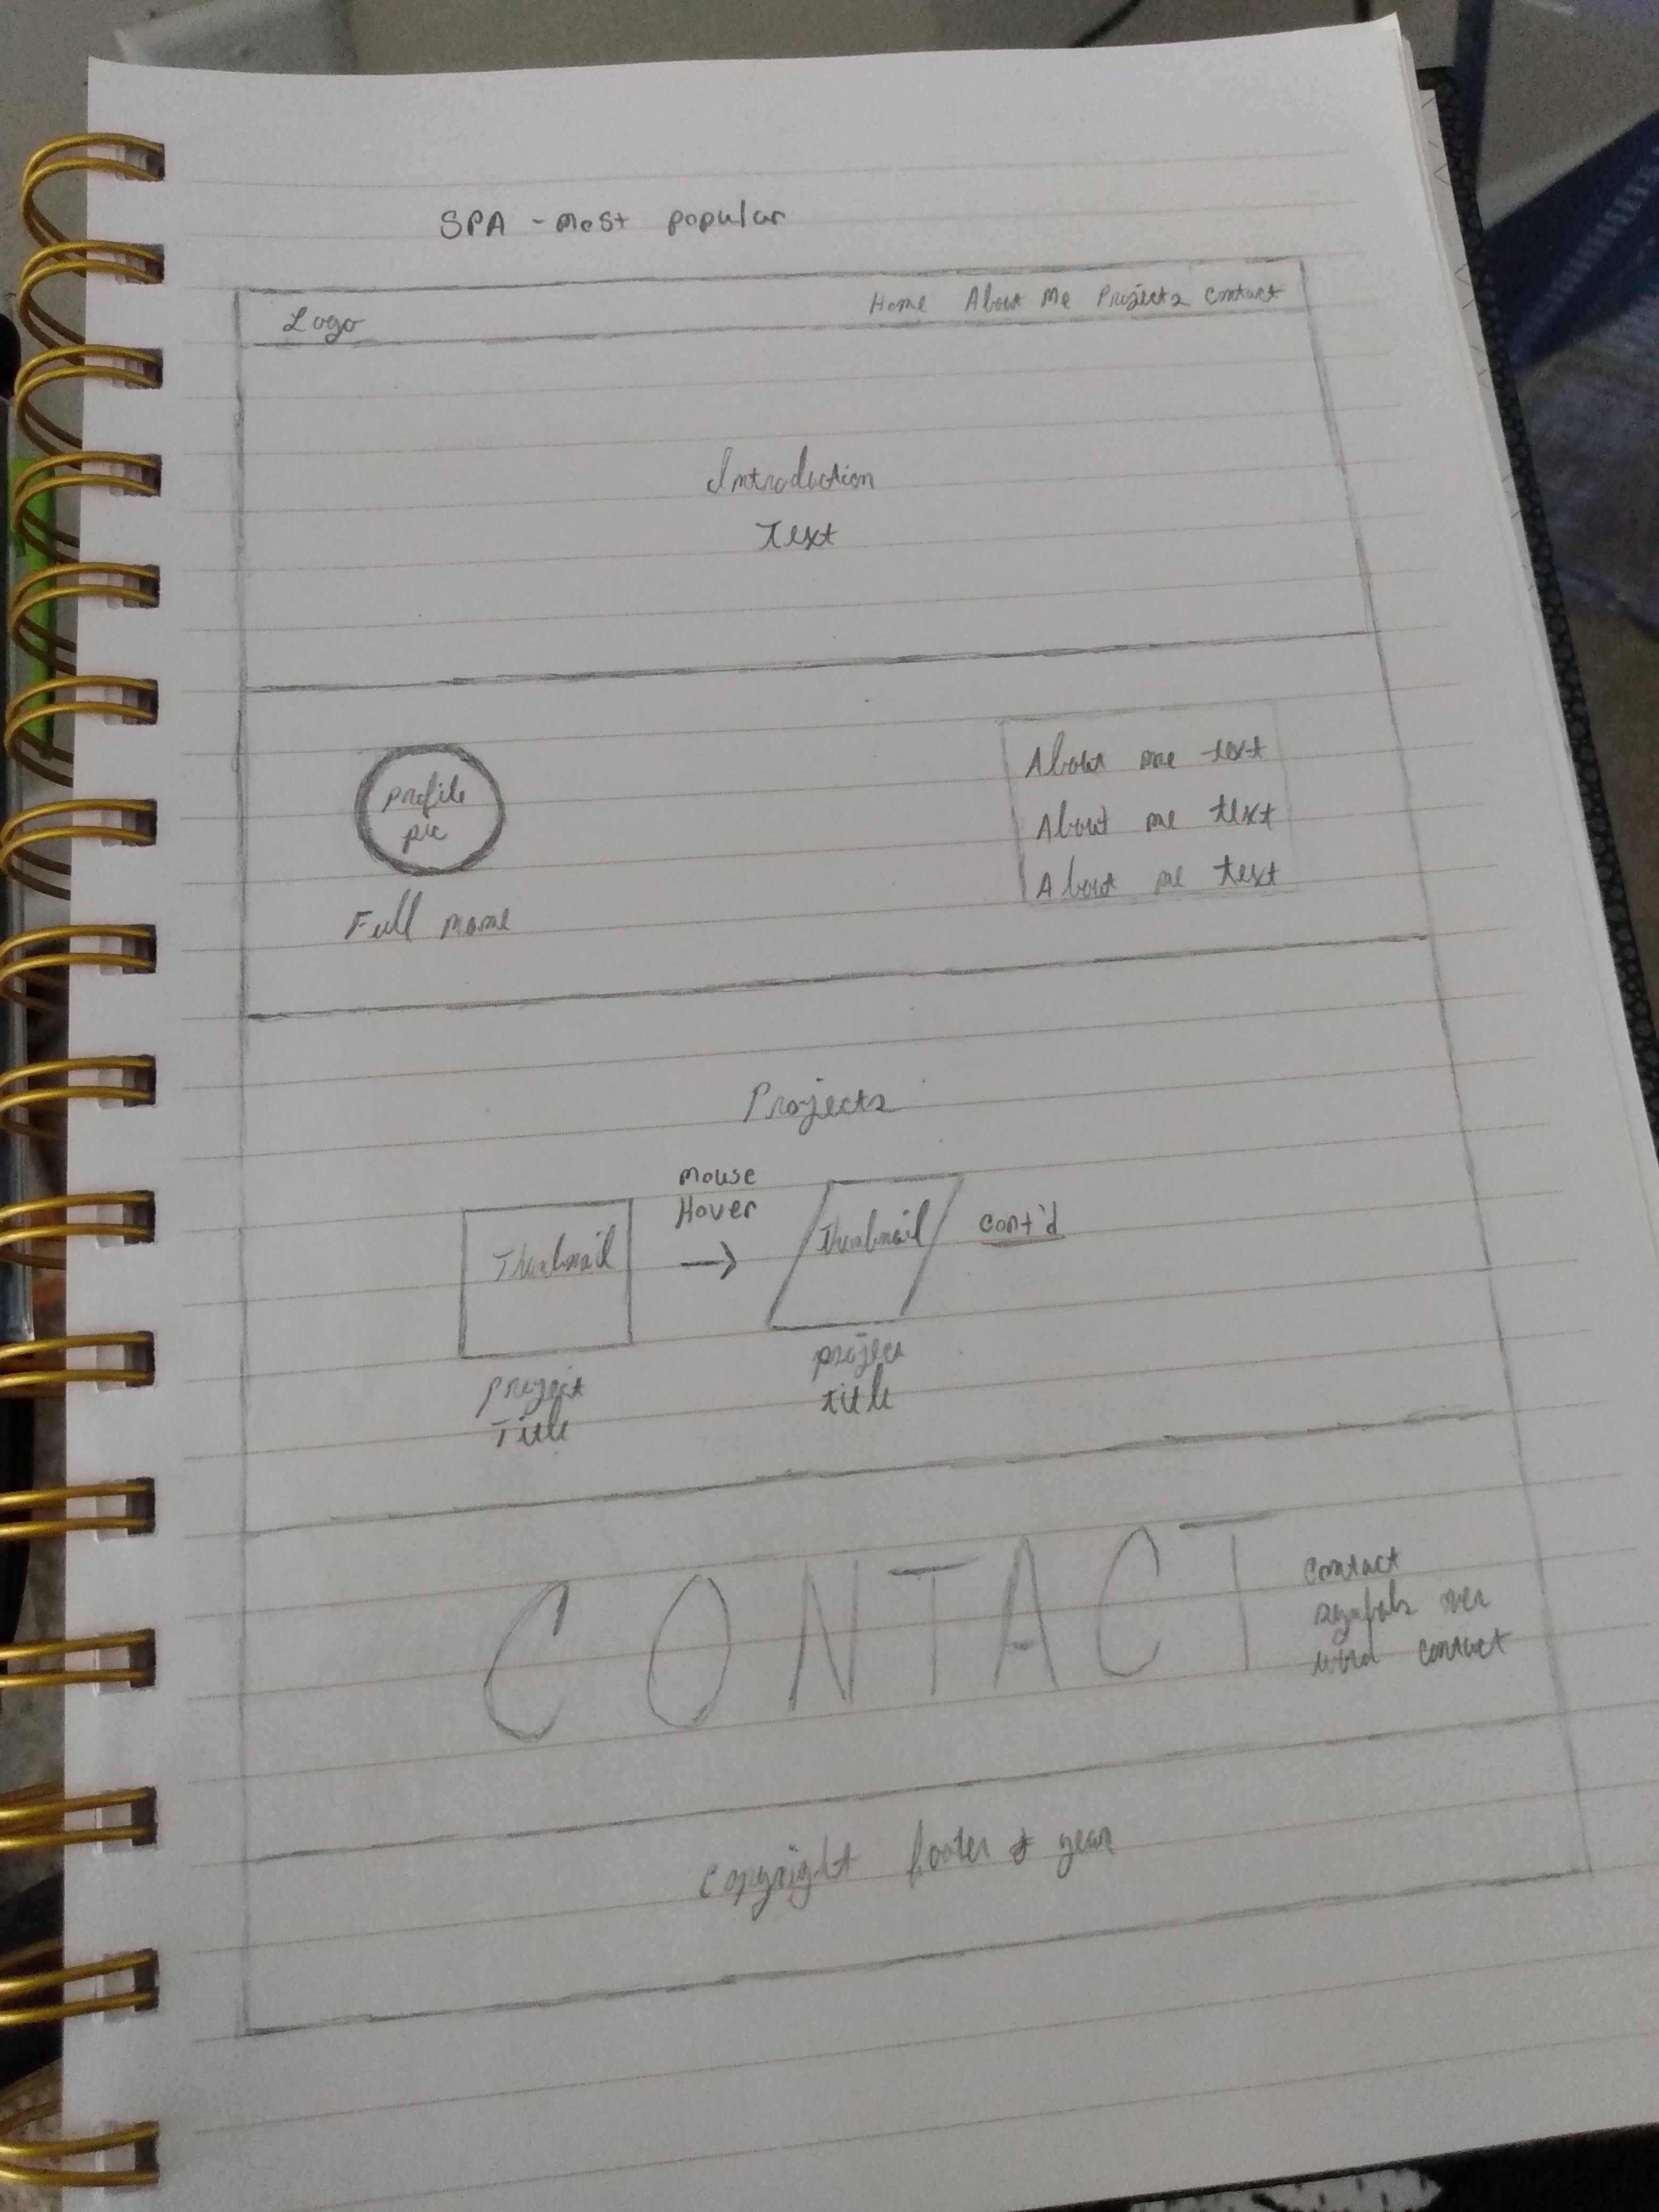 SPA - most popular
Logo
Home About Me Projects Contact
Introduction
Text
profile
pic
Full name
About me text
About me text
About me text
Projects
Mouse
Hover
Thumbnail
Thumbnail
cont'd
project
Title
project
title
CONTACT
Contact
symbols over
word contact
Copyright footer & year